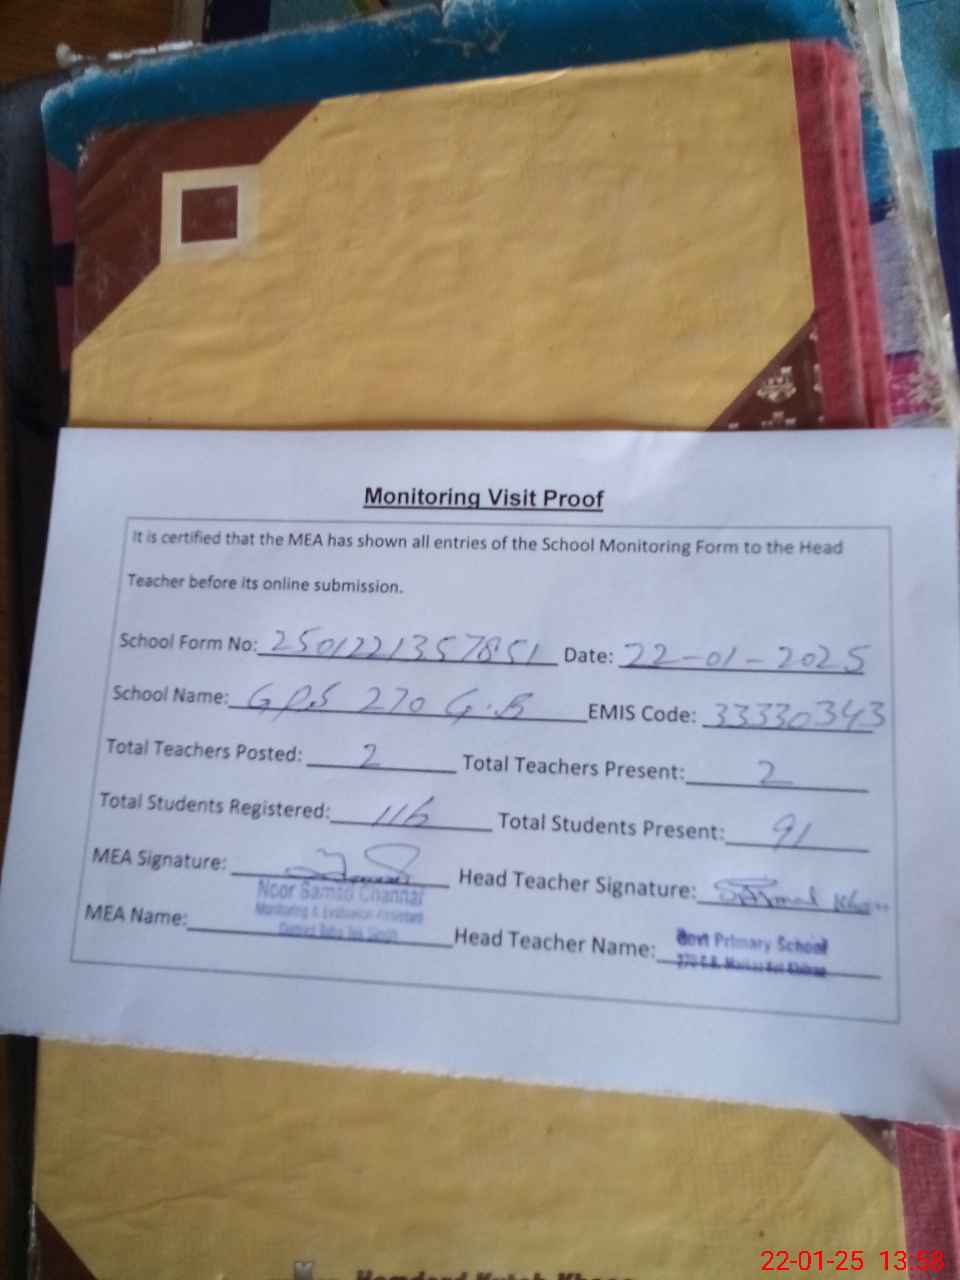 Monitoring Visit Proof
It is certified that the MEA has shown all entries of the School Monitoring Form to the Head
Teacher before its online submission.
School Form No: 2501221357851 Date: 22-01-2025
School Name: GPS 270 G.B EMIS Code: 33330343
Total Teachers Posted: 2 Total Teachers Present: 2
Total Students Registered: 116 Total Students Present: 91
MEA Signature: Head Teacher Signature:
Noor Samad Channar
Monitoring & Evaluation Assistant
District Toba Tek Singh
MEA Name: Head Teacher Name: Govt Primary School
270 G.B.
22-01-25 13:58